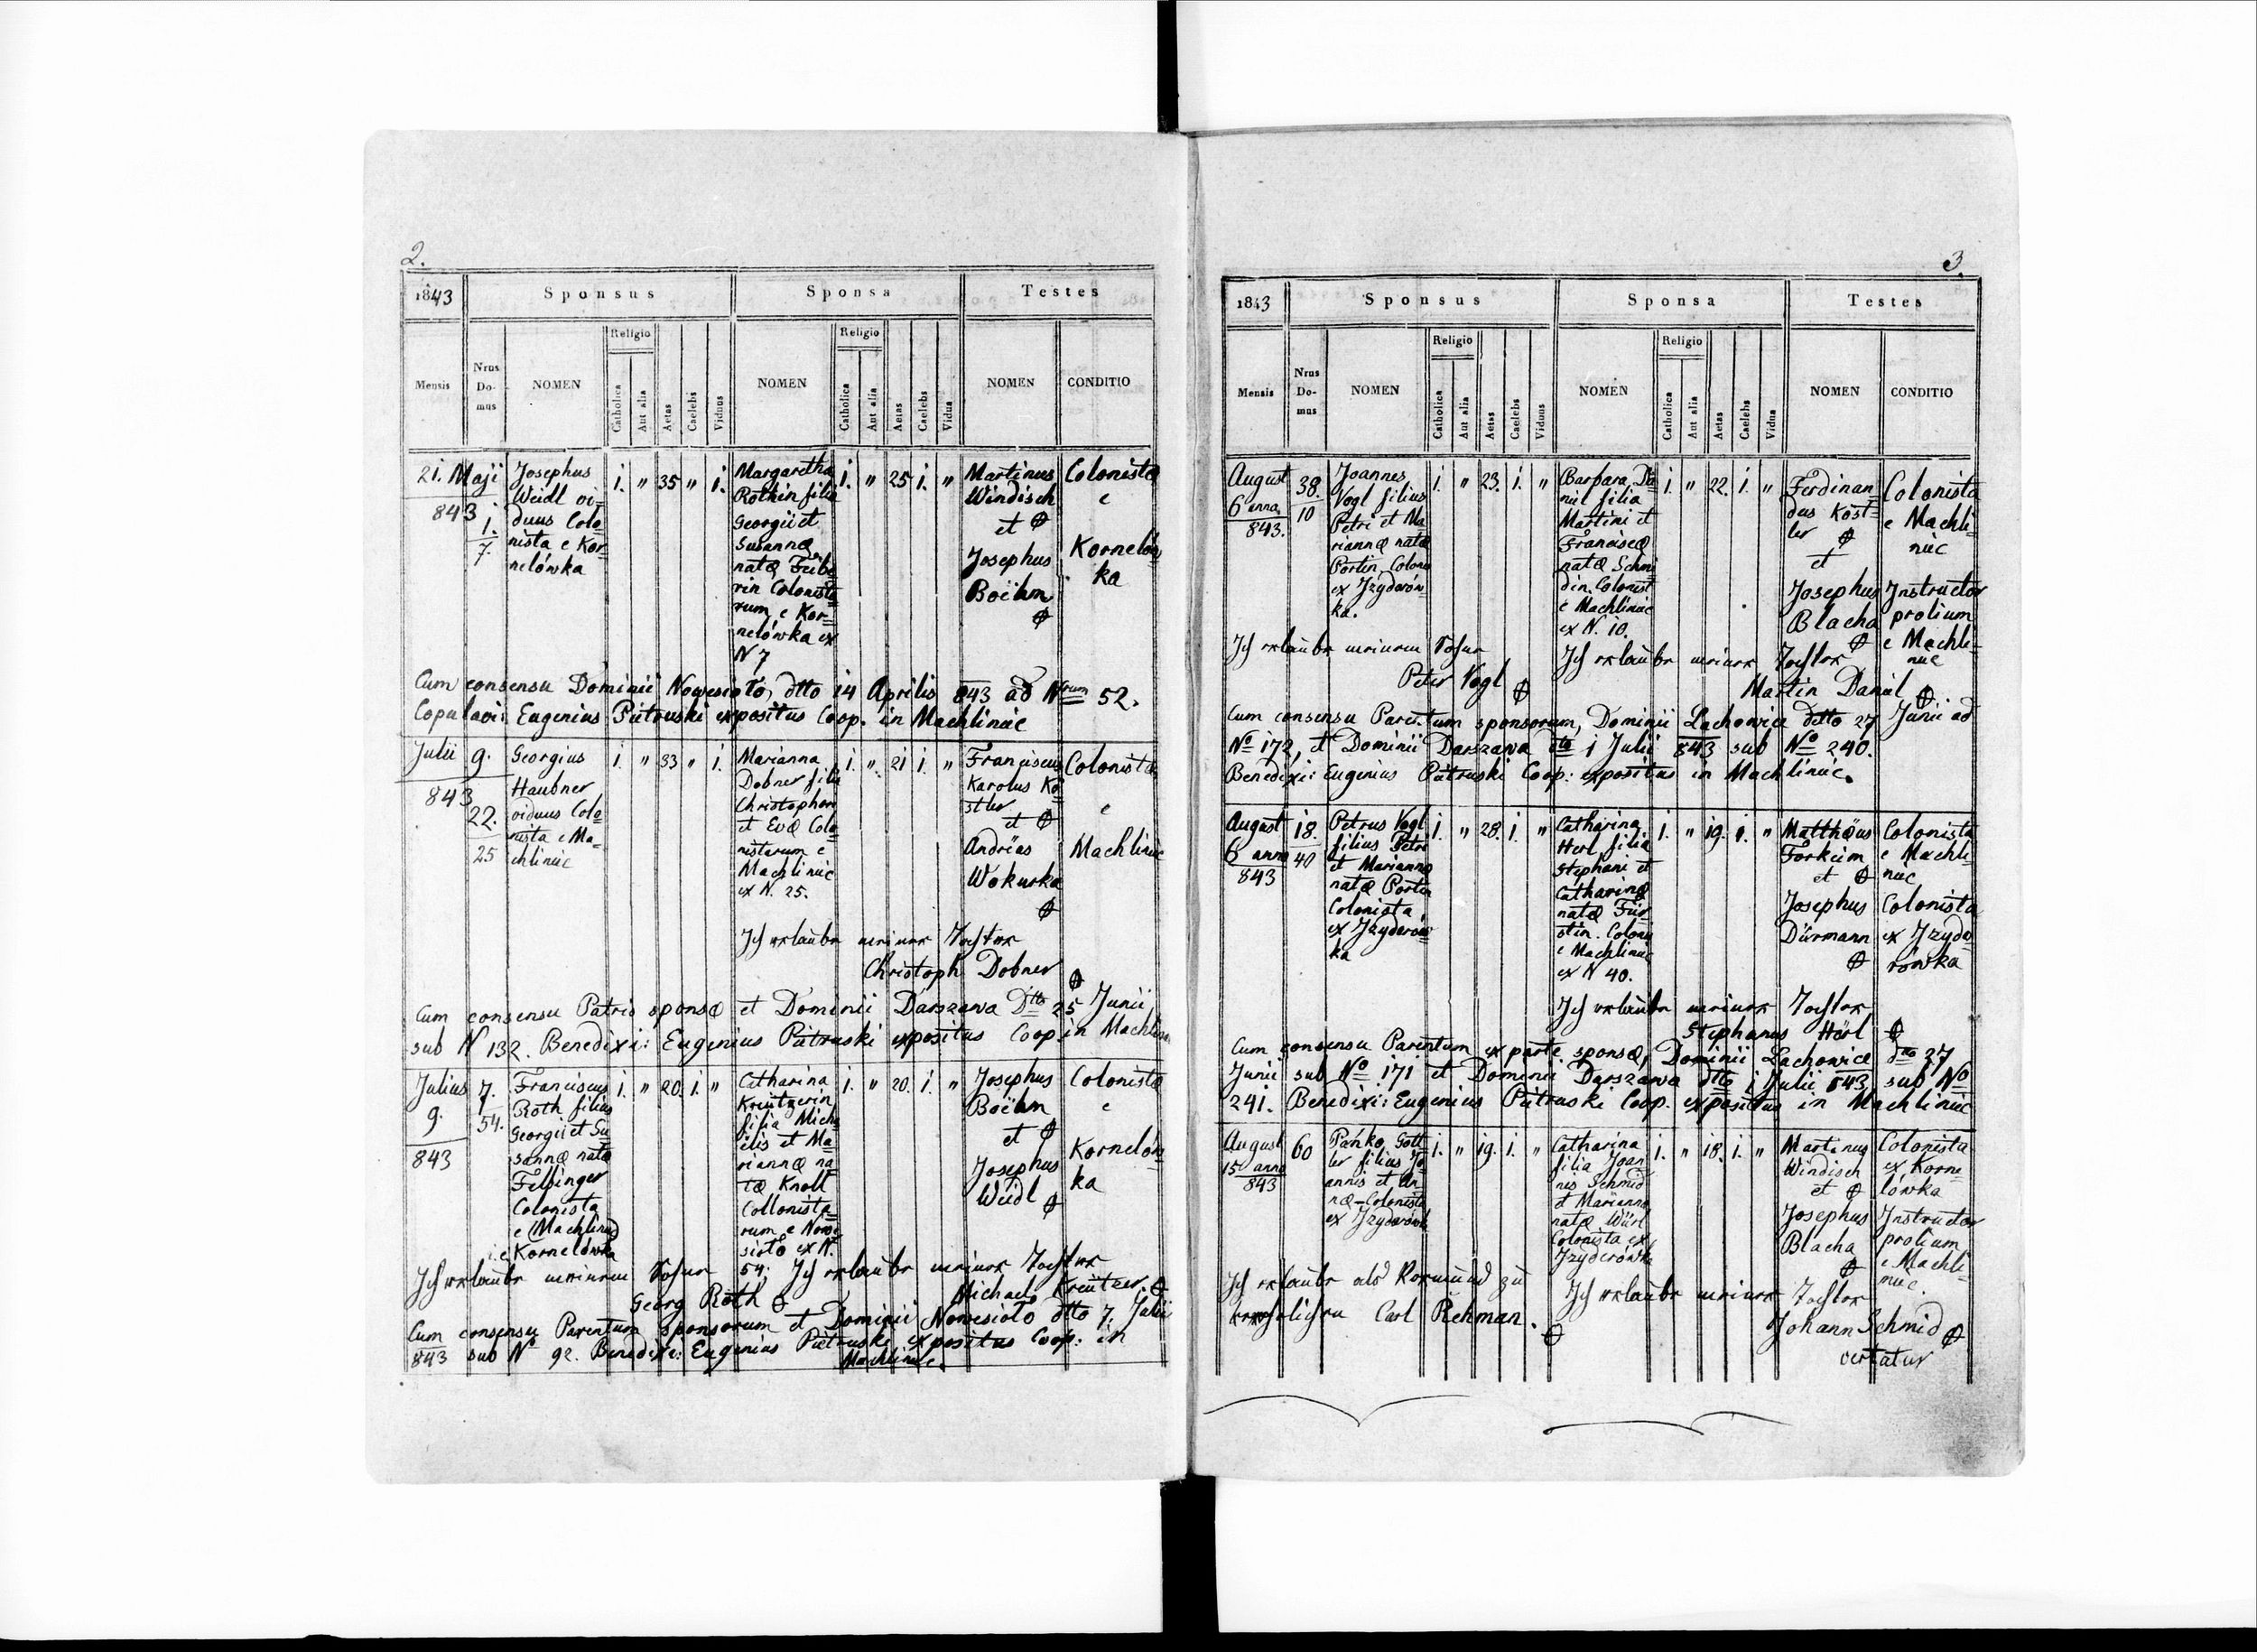 2.
1843
Sponsus
Sponsa
Testes
Mensis
Nrus
Do-
mus
NOMEN
Religio
Catholica
Aut alia
Aetas
Caelebs
Viduus
NOMEN
Religio
Catholica
Aut alia
Aetas
Caelebs
Vidua
NOMEN
CONDITIO
21. Maji
843
1.
7.
Josephus
Weidl vi=
duus Colo=
nista e Kor=
nelówka
1. " 35 " 1.
Margaretha
Rothin filia
Georgii et
Susannæ
natæ
rin Colonista=
rum, e Kor=
nelówka ex
N 7
1. " 25 1. "
Martinus
Windisch
et
Josephus
Boëhm
Colonista
e
Kornelów
ka
Cum consensu Dominii Nowesioło, dtto 14 Aprilis 843 ad Nrum 52.
Copulavi: Eugenius Pietruski expositus Coop. in Machliniec
Julii 9.
843
22.
25
Georgius
Haubner
viduus Colo=
nista e Ma=
chliniec
1. " 33 " 1.
Marianna
Dobner filia
Christophori
et Evæ Colo=
nistarum e
Machliniec
ex N. 25.
1. " 21 1. "
Franciscus
Karolus Kö=
stler
et
Andréas
Wokurka
Colonista
e
Machliniec
Ich erlaube meiner Tochter
Christoph Dobner
Cum consensu Patris sponsæ et Dominii Darszawa Dtto 25 Junii
sub N 132. Benedixi: Eugenius Pietruski expositus Coop. in Machliniec
Julius
9.
843
7.
54.
Franciscus
Roth filius
Georgii et Su=
sannæ natæ
Felfinger
Colonista
e Machliniec
i.e Kornelówka
1. " 20. 1. "
Catharina
Kreutzerin
filia Micha
elis et Ma=
riannæ na=
tæ Knoll
Collonista=
rum e Nowe
sioło ex N.
54.
1. " 20. 1. "
Josephus
Boëhm
et
Josephus
Weidl
Colonista
e
Kornelów
ka
Ich erlaube meinem Sohne
Georg Roth
Ich erlaube meiner Tochter
Michael Kreutzer
Cum consensu Parentum sponsorum et Dominii Nowesioło dtto 7. Julii
843 sub No 92. Benedixi: Eugenius Pietruski expositus Coop: in
Machliniec.
3.
1843
Sponsus
Sponsa
Testes
Mensis
Nrus
Do-
mus
NOMEN
Religio
Catholica
Aut alia
Aetas
Caelebs
Viduus
NOMEN
Religio
Catholica
Aut alia
Aetas
Caelebs
Vidua
NOMEN
CONDITIO
August
6 anno
843.
38.
10
Joannes
Vogl filius
Petri et Ma
riannæ natæ
Portin Colon
ex Jzyderów
ka.
1. " 23. 1. "
Barbara Da=
niel filia
Martini et
Franciscæ
natæ Schmi
din. Colonist
e Machliniec
ex N. 10.
1. " 22. 1. "
Ferdinan=
dus Köst=
ler
et
Josephus
Blacha
Colonista
e Machli=
niec
Jnstructor
prolium
e Machli=
niec
Ich erlaube meinem Sohne
Peter Vogl
Ich erlaube meiner Tochter
Martin Daniel
Cum consensu Parentum sponsorum, Dominii Lachowice dtto 27 Junii ad
No 172, et Dominii Darszawa dtto 1 Julii 843 sub No 240.
Benedixi: Eugenius Pietruski Coop: expositus in Machliniec.
August
6 anno
843
18.
40
Petrus Vogl
filius Petri
et Mariannæ
natæ Portin
Colonista,
ex Jzyderów
ka
1. " 28. 1. "
Catharina
Herl filia
Stephani et
Catharinæ
natæ Für
stin. Colon
e Machliniec
ex N 40.
1. " 19. 1. "
Matthäus
Forkeim
et
Josephus
Dürmann
Colonista
e Machli=
niec
Colonista
ex Jzyde
rówka
Ich erlaube meiner Tochter
Stephanus Hörl
Cum consensu Parentum ex parte sponsæ, Dominii Lachowice dtto 27
Junii sub No 171 et Dominii Darszawa dtto 1 Julii 843 sub No
241. Benedixi: Eugenius Pietruski Coop. expositus in Machliniec
August
15 anno
843
60
Pańko Gott
ler filius Jo
annis et An
næ - Colonista
ex Jzyderówk
1. " 19. 1. "
Catharina
filia Joan
nis Schmid
et Mariannæ
natæ Würl
Colonista ex
Jzyderówka
1. " 18. 1. "
Martinus
Windisch
et
Josephus
Blacha
Colonista
ex Korne
lówka
Jnstructor
prolium
e Machli=
niec.
Ich erlaube als Vormund zu
Carl Rehman.
Ich erlaube meiner Tochter
Johann Schmid
vertatur